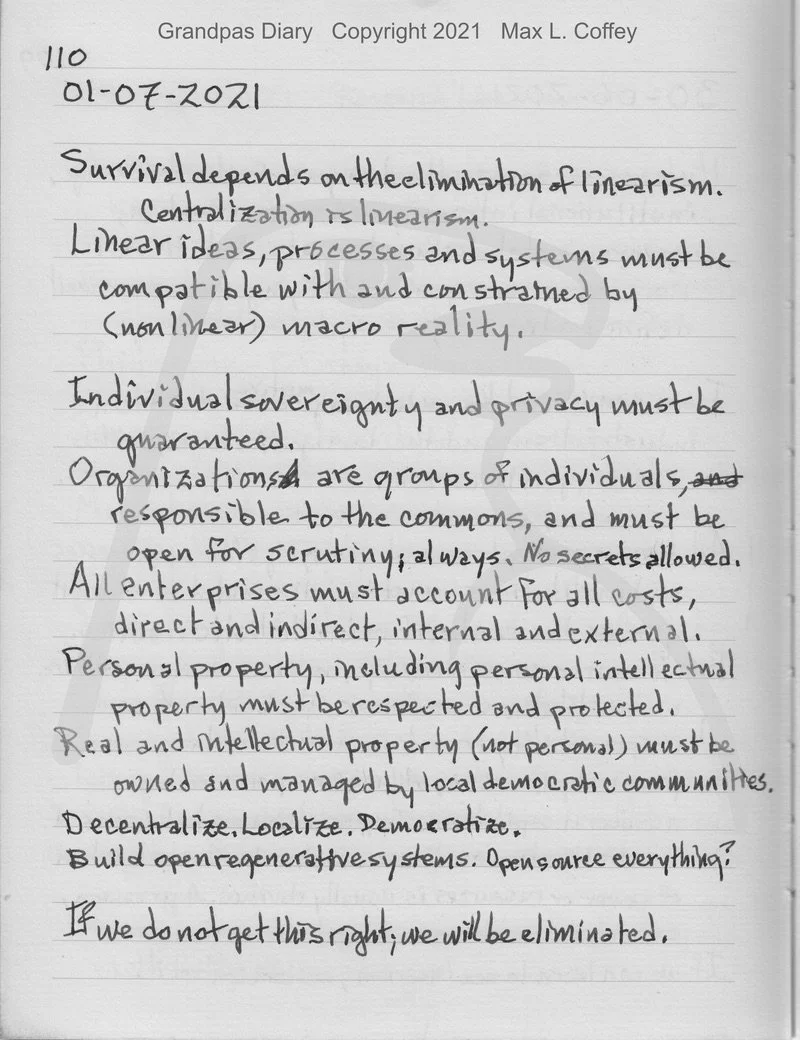 Grandpas Diary Copyright 2021 Max L. Coffey
110
01-07-2021
Survival depends on the elimination of linearism.
Centralization is linearism.
Linear ideas, processes and systems must be
compatible with and constrained by
(nonlinear) macro reality.
Individual sovereignty and privacy must be
guaranteed.
Organizations are groups of individuals, and
responsible to the commons, and must be
open for scrutiny; always. No secrets allowed.
All enterprises must account for all costs,
direct and indirect, internal and external.
Personal property, including personal intellectual
property must be respected and protected.
Real and intellectual property (not personal) must be
owned and managed by local democratic communities.
Decentralize. Localize. Democratize.
Build open regenerative systems. Open source everything?
If we do not get this right; we will be eliminated.